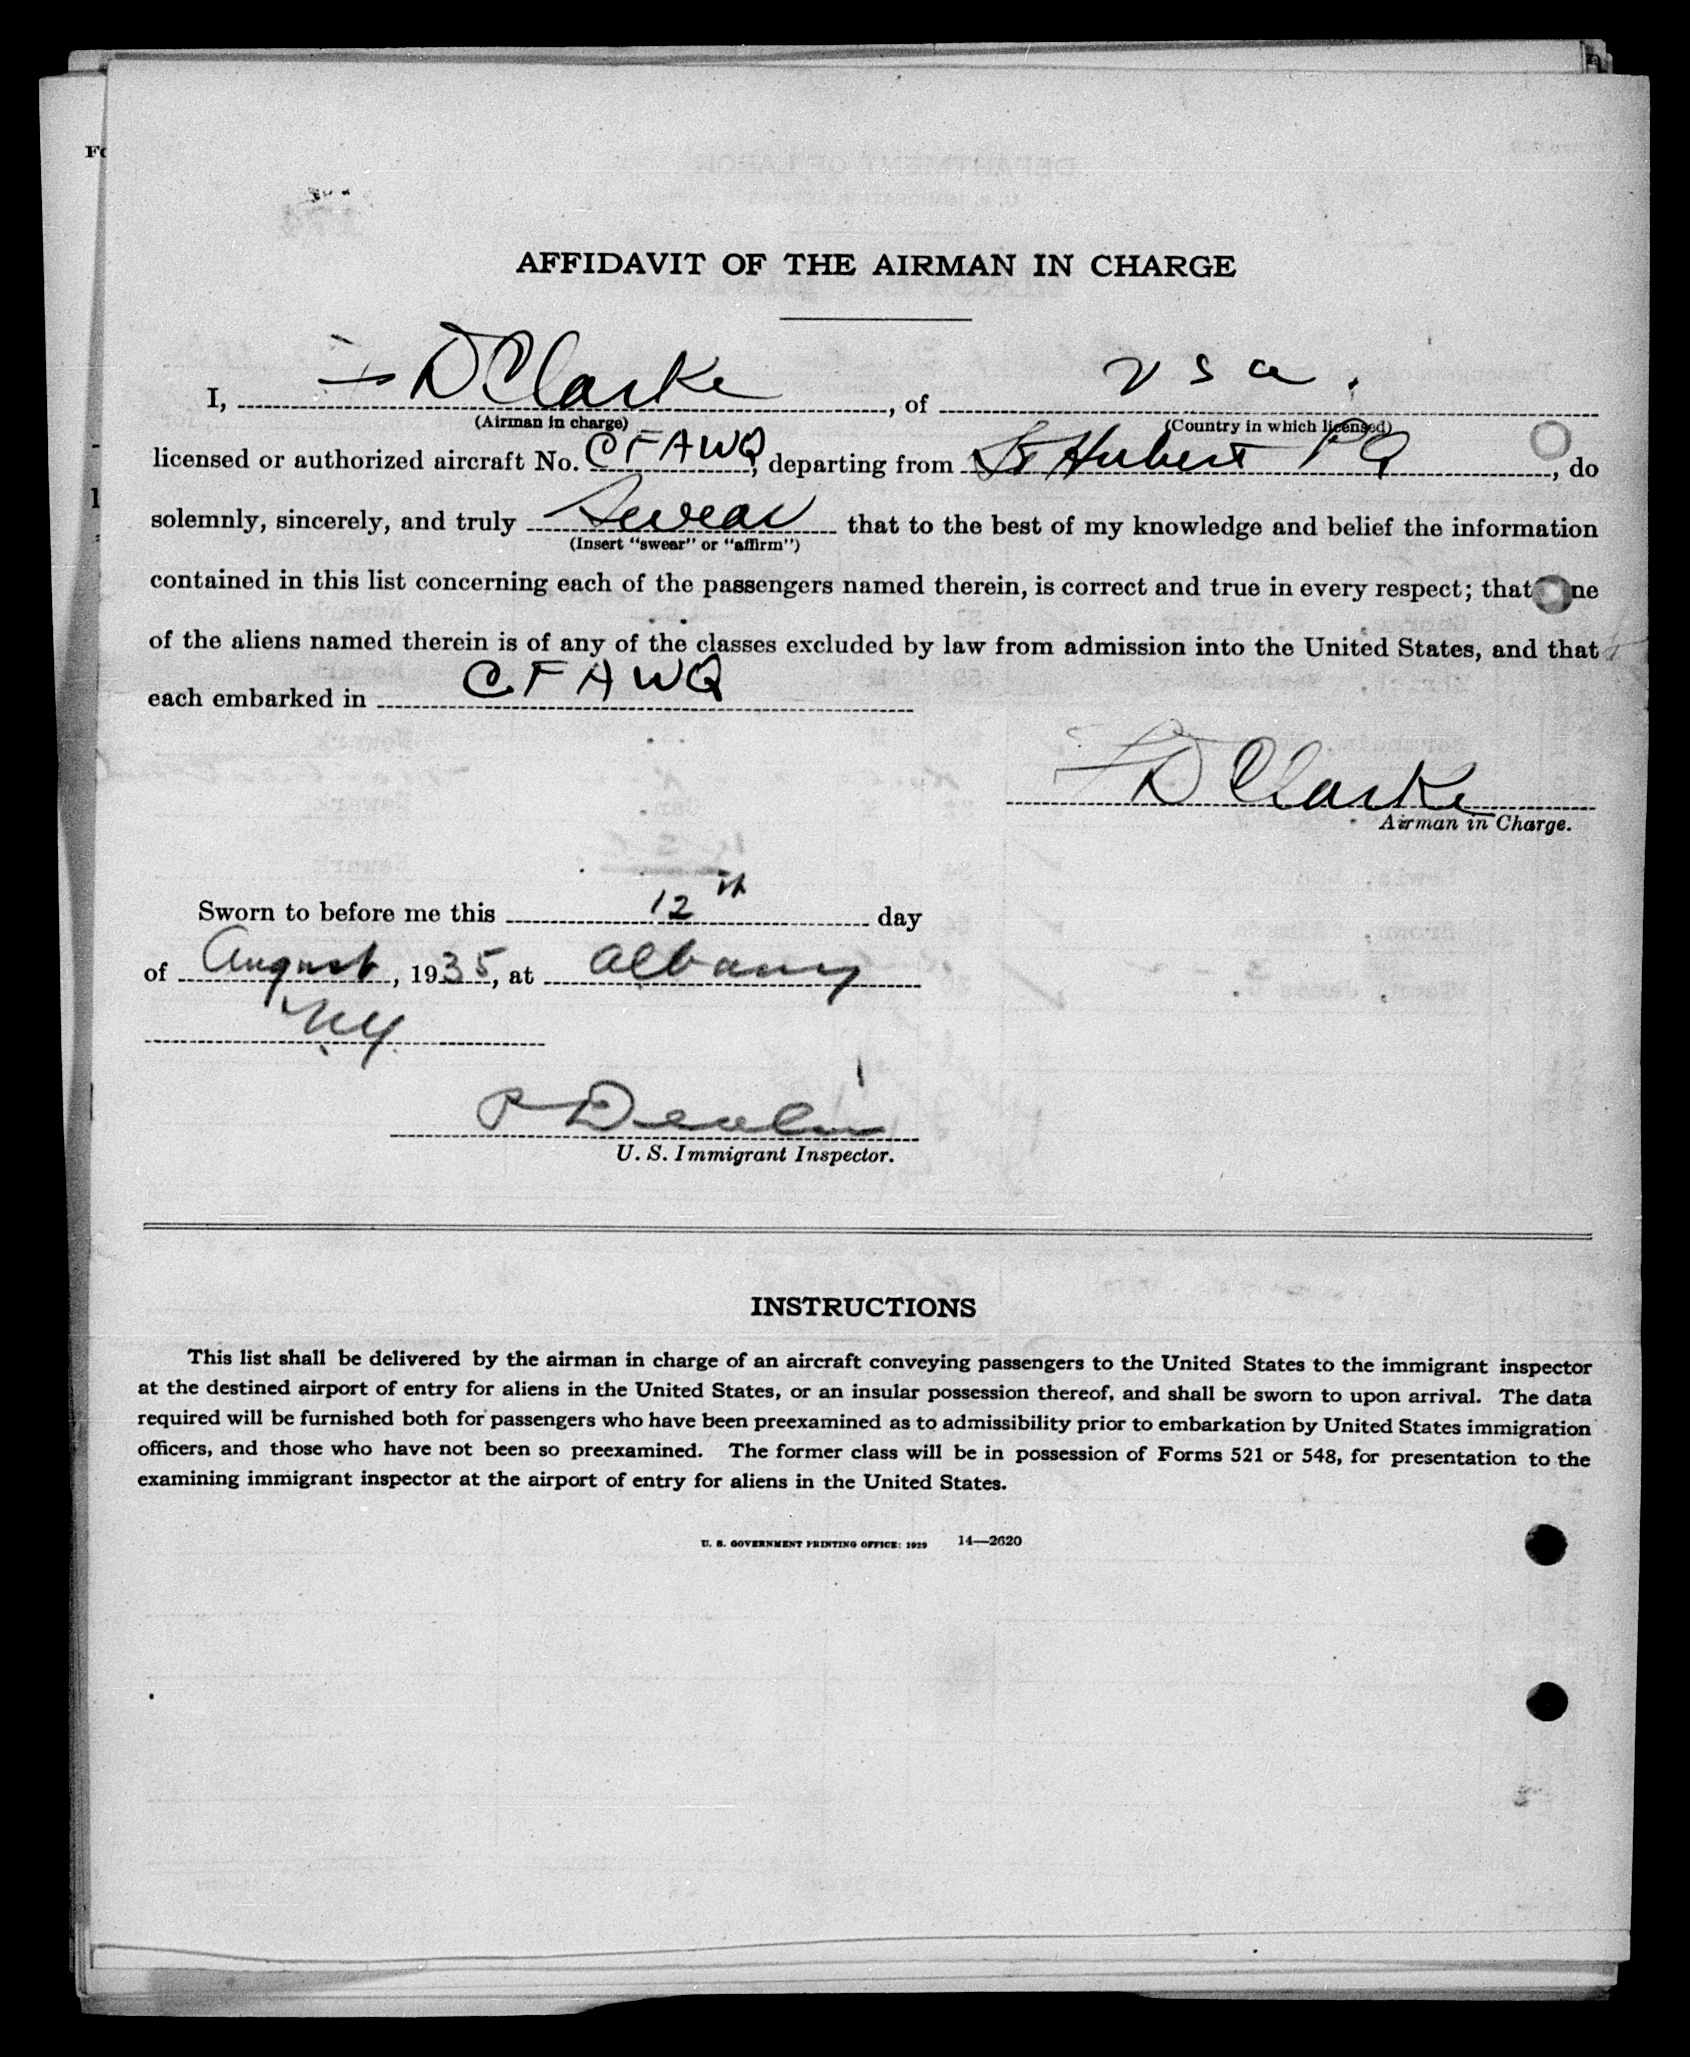 AFFIDAVIT OF THE AIRMAN IN CHARGE
I, F D Clarke, of USA.
(Airman in charge) (Country in which licensed)
licensed or authorized aircraft No. CFAWQ, departing from St Hubert PQ, do
solemnly, sincerely, and truly Swear that to the best of my knowledge and belief the information
(Insert "swear" or "affirm")
contained in this list concerning each of the passengers named therein, is correct and true in every respect; that ne
of the aliens named therein is of any of the classes excluded by law from admission into the United States, and that
each embarked in CFAWQ
F D Clarke
Airman in Charge.
Sworn to before me this 12th day
of August, 1935, at Albany
N.Y.
U. S. Immigrant Inspector.
INSTRUCTIONS
This list shall be delivered by the airman in charge of an aircraft conveying passengers to the United States to the immigrant inspector
at the destined airport of entry for aliens in the United States, or an insular possession thereof, and shall be sworn to upon arrival. The data
required will be furnished both for passengers who have been preexamined as to admissibility prior to embarkation by United States immigration
officers, and those who have not been so preexamined. The former class will be in possession of Forms 521 or 548, for presentation to the
examining immigrant inspector at the airport of entry for aliens in the United States.
U. S. GOVERNMENT PRINTING OFFICE: 1929 14—2620